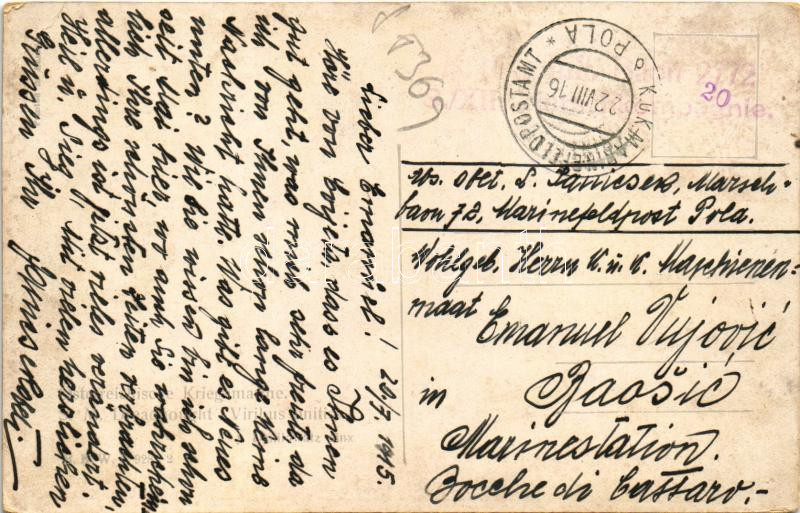 Lieber Emanuel! 20/7 1915.
Höre von Brajela, dass es Ihnen
gut geht, was mich sehr freut, da
ich von Ihnen schon lange keine
Nachricht hatte. Was gibt es Neues
unten? Wie Sie wissen bin ich schon
seit Mai hier wo auch Sie wahrschein-
lich Ihre schönsten Zeiten verbrachten,
allerdings ist jetzt vieles verändert.
Heil u. Sieg! Mit vielen herzlichen
Grüssen Ihr
K.U.K. MARINEFELDPOSTAMT * POLA
22 VIII 16
20
Abs. Oblt. S. Marsch-
baon 72, Marinefeldpost Pola.
Wohlgeb. Herrn K. u. K. Maschinen-
maat
Emanuel Vujović
in
Baošić
Marinestation.
Bocche di Cattaro.-
Österreichische Kriegsmarine.
Viribus Unitis